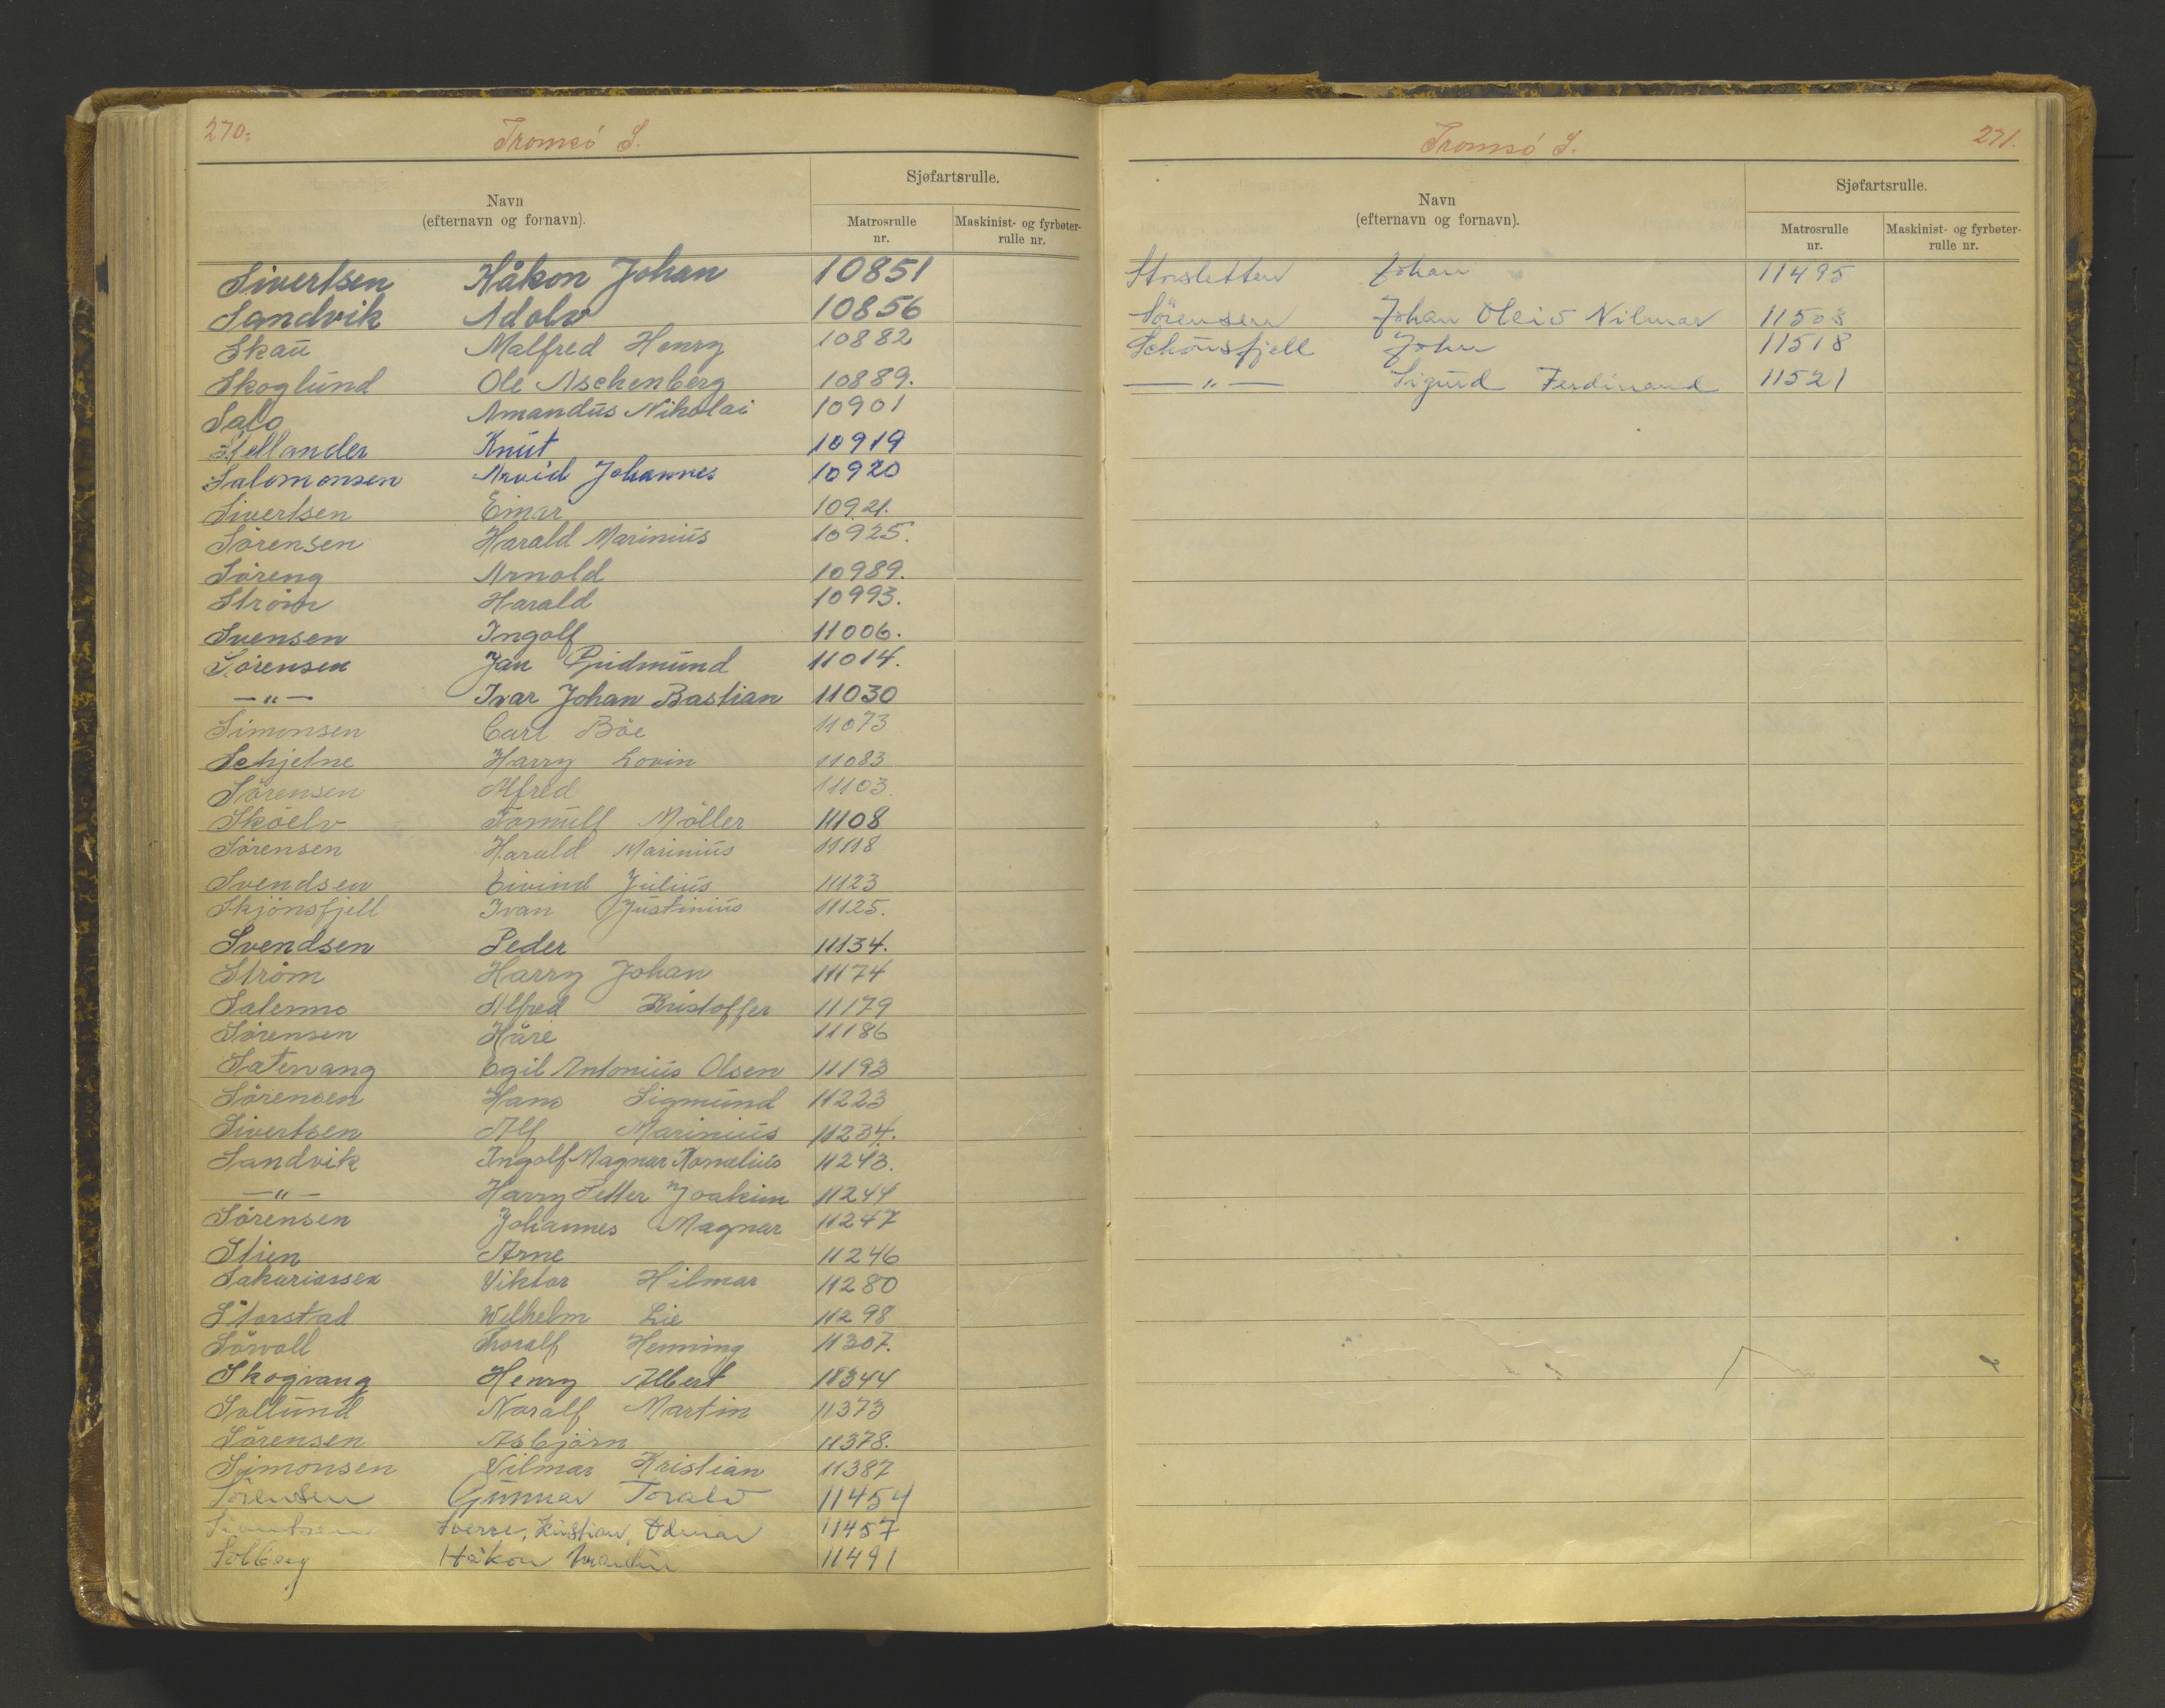 270.
Tromsö S.
Navn
(efternavn og fornavn).
Sjøfartsrulle.
Matrosrulle nr.
Maskinist- og fyrbøter-rulle nr.
Sivertsen Håkon Johan 10851
Sandvik Adolv 10856
Skau Malfred Henry 10882
Skoglund Ole Aschenberg 10889.
Salo Amandus Nikolai 10901
Stellander Knut 10919
Salomonsen Arvid Johannes 10920
Sivertsen Einar 10921.
Sörensen Harald Marinius 10925.
Söreng Arnold 10989.
Ström Harald 10993.
Svensen Ingolf 11006.
Sörensen Jan Gudmund 11014.
—"— Ivar Johan Bastian 11030
Simonsen Carl Böe 11073
Schjelne Harry Lovin 11083
Sörensen Alfred 11103.
Sköelv Tormulf Möller 11108
Sörensen Harald Marinius 11118
Svendsen Eivind Julius 11123
Skjönsfjell Ivan Justinius 11125.
Svendsen Peder 11134.
Ström Harry Johan 11174
Salemno Alfred Kristoffer 11179
Sörensen Kåre 11186
Satervang Egil Antonius Olsen 11193
Sörensen Hans Sigmund 11223
Sivertsen Alf Marinius 11234.
Sandvik Ingolf Magnar Kornelius 11243.
—"— Harry Petter Joakim 11244
Sörensen Johannes Magnar 11247
Stien Arne 11246
Sakariassen Viktor Hilmar 11280
Storstad Wilhelm Lie 11298
Sörvoll Thoralf Henning 11307.
Skogvang Henry Albert 11344
Sollund Noralf Martin 11373
Sörensen Asbjörn 11378.
Simonsen Vilmar Kristian 11387
Sörensen Gunnar Toralv 11454
Sverre, Kristian, Odmar 11457
Solberg Håkon 11491
Tromsö S.
271.
Navn
(efternavn og fornavn).
Sjøfartsrulle.
Matrosrulle nr.
Maskinist- og fyrbøter-rulle nr.
Storsletten Johan 11495
Sörensen Johan Oleiv Nilmar 11503
Schönsfjell John 11518
—"— Sigurd Ferdinand 11521